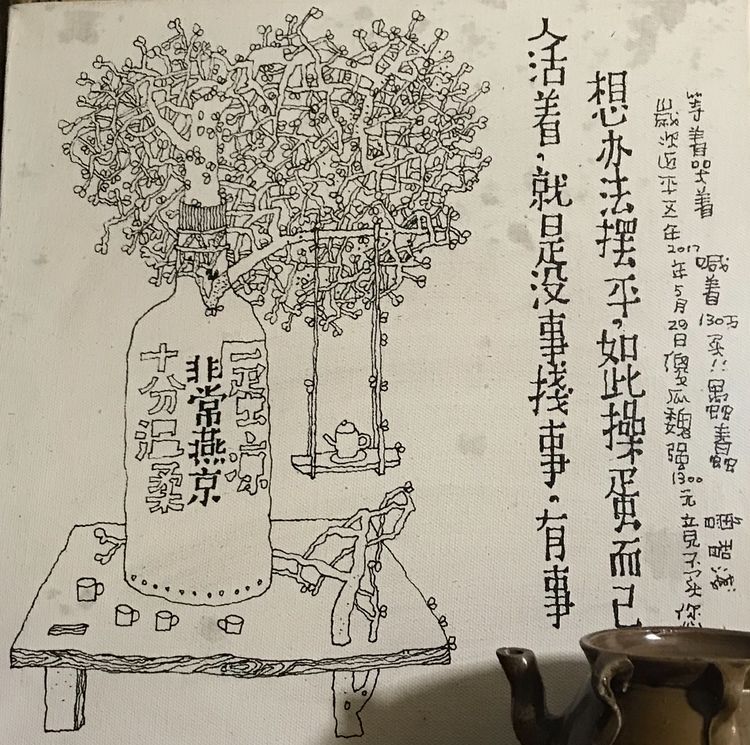 十分温柔
非常燕京
人活着，就是没事找事。有事
想办法摆平。如此操蛋而已
岁次近平五年2017年5月29日傻瓜魏强1300元竟不买
等着哭着 喊着130万买!! 愚蠢